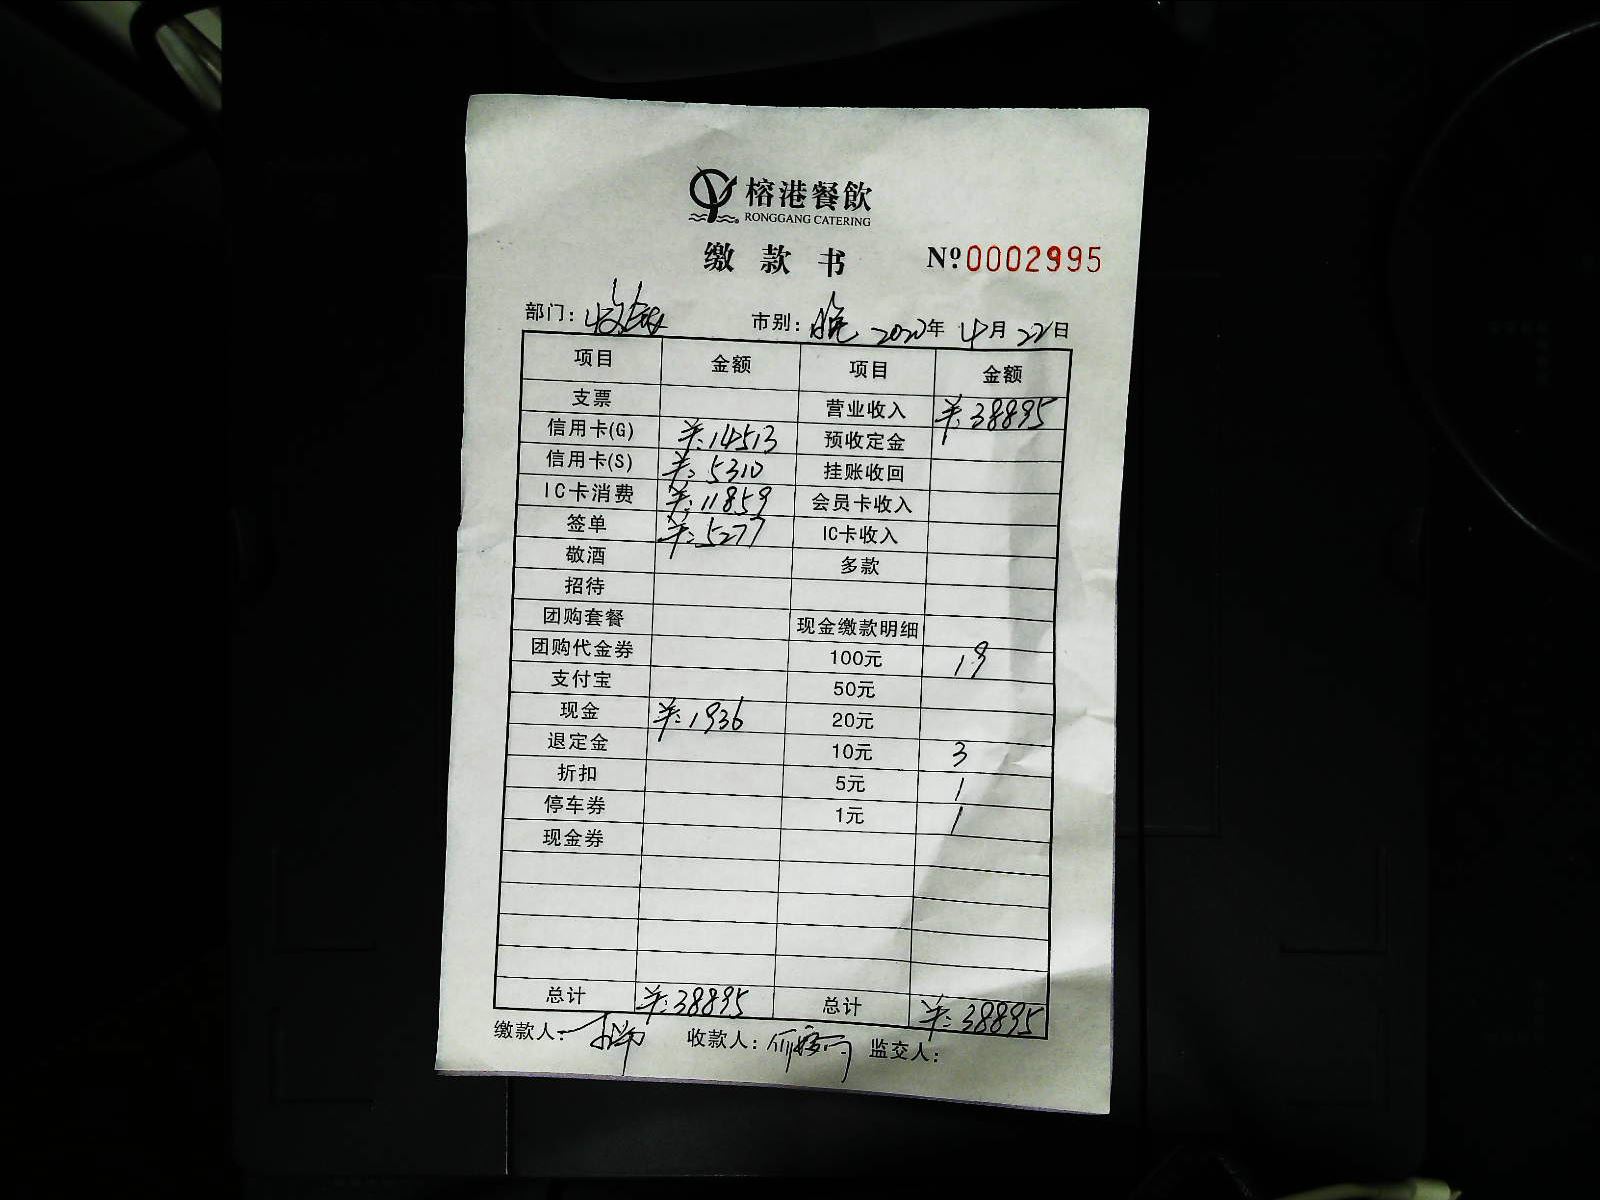 榕港餐飲
RONGGANG CATERING
缴款书 Nº 0002995
部门: 收银 市别: 晚 2020年 4月 22日
项目 金额 项目 金额
支票 营业收入 ¥:38895
信用卡(G) ¥:14513 预收定金
信用卡(S) ¥:5310 挂账收回
IC卡消费 ¥:11859 会员卡收入
签单 ¥:5277 IC卡收入
敬酒 多款
招待
团购套餐 现金缴款明细
团购代金券 100元 19
支付宝 50元
现金 ¥:1936 20元
退定金 10元 3
折扣 5元 1
停车券 1元 1
现金券
总计 ¥:38895 总计 ¥:38895
缴款人: 收款人: 监交人: